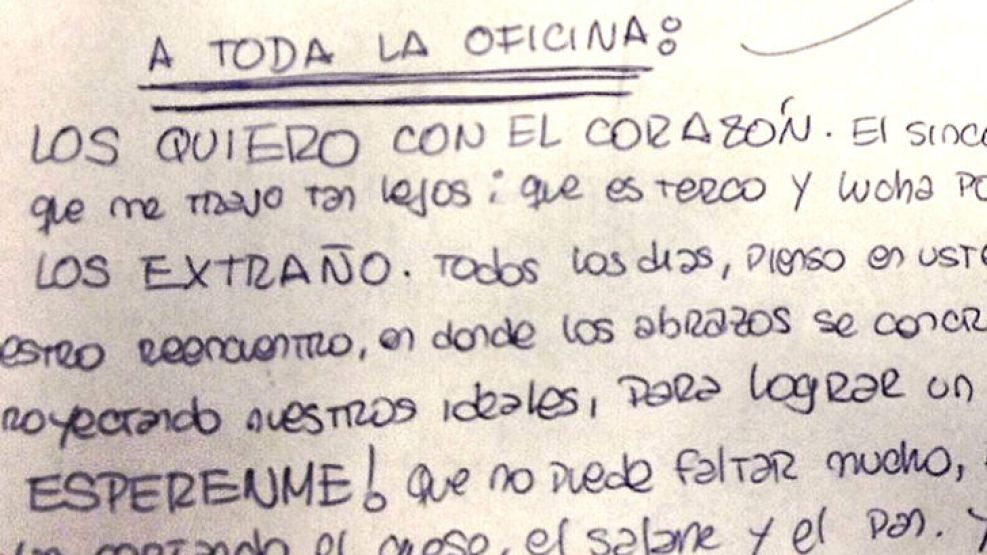 A TODA LA OFICINA:
LOS QUIERO CON EL CORAZÓN. El
que me trajo tan lejos; que es terco y lucha
LOS EXTRAÑO. Todos los dias, pienso en
reencuentro, en donde los abrazos se
nuestros ideales, para lograr un
ESPERENME! Que no puede faltar mucho,
el queso, el salame y el pan.